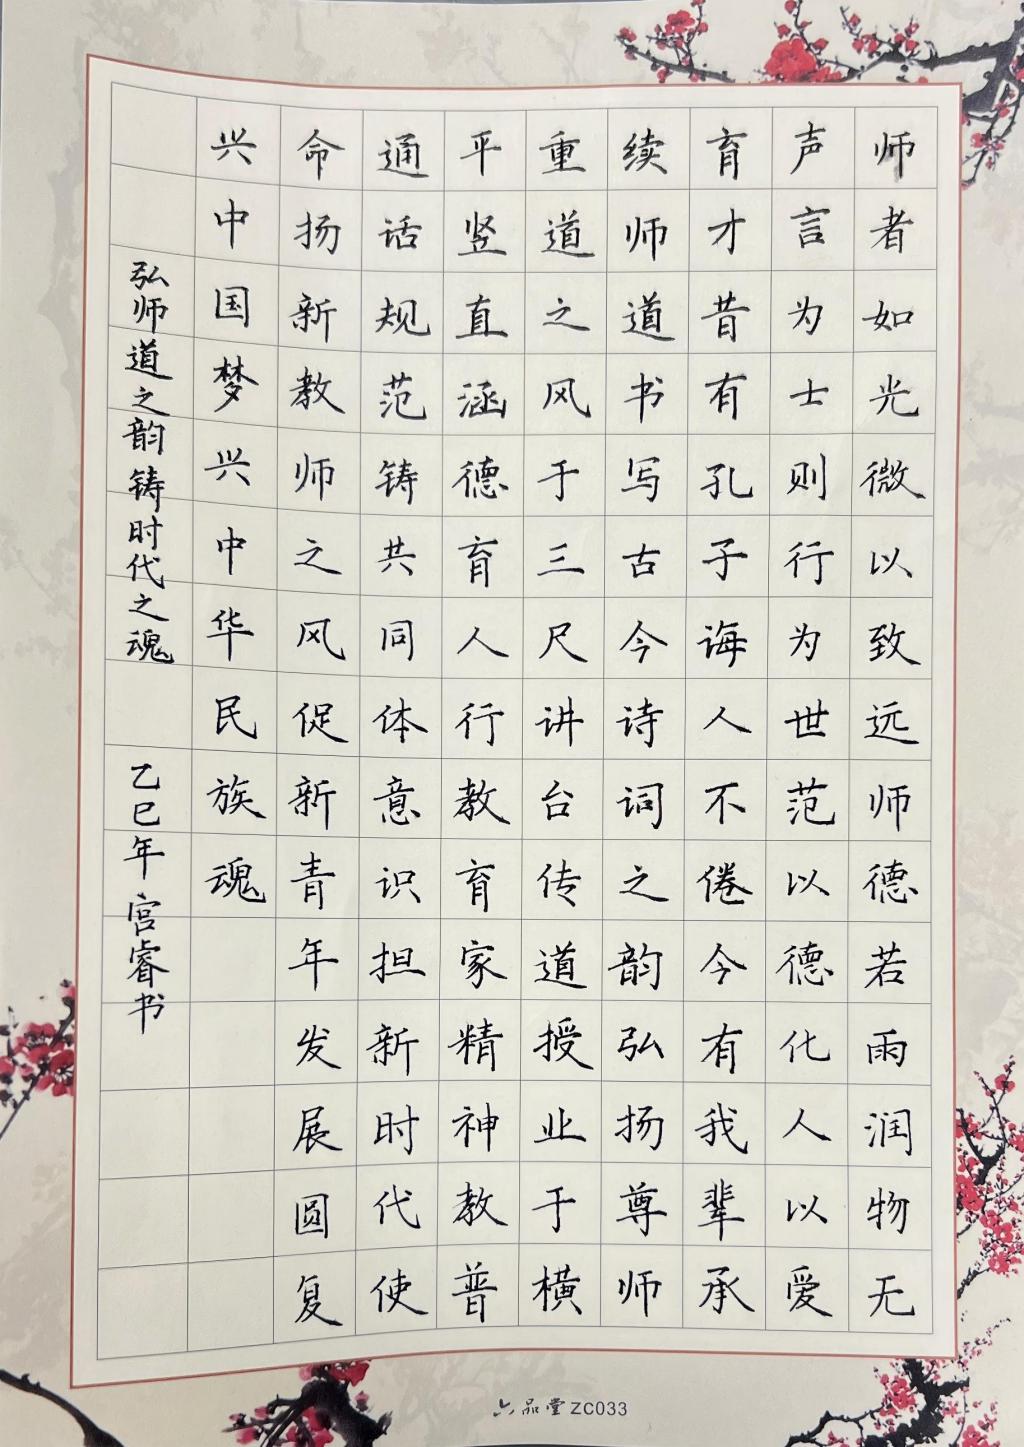 师者如光微以致远师德若雨润物无
声言为士则行为世范以德化人以爱
育才昔有孔子诲人不倦今有我辈承
续师道书写古今诗词之韵弘扬尊师
重道之风于三尺讲台传道授业于横
平竖直涵德育人行教育家精神教普
通话规范铸共同体意识担新时代使
命扬新教师之风促新青年发展圆复
兴中国梦兴中华民族魂
弘师道之韵铸时代之魂
乙巳年宫睿书
六品堂ZC033